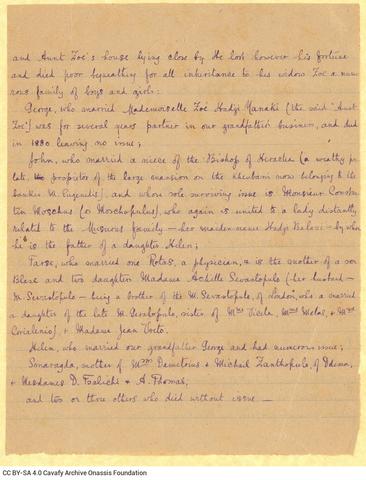 and Aunt Zoë's house lying close by. He lost however his fortune
and died poor bequeathing for all inheritance to his widow Zoë a nume-
rous family of boys and girls:
George, who married Mademoiselle Zoë Hadgi Yanaki (the said "Aunt
Zoë") was for several years partner in our grandfather's business, and died
in 1880 leaving no issue;
John, who married a niece of the Bishop of Heraclea (a wealthy pre-
late, proprietor of the large mansion on the now belonging to the
banker M. Eugenidi), and whose sole surviving issue is Monsieur Constan-
tin Moschus (or Moschopulus), who again is united to a lady distantly
related to the family — her maiden name Hadgi — by whom
he is the father of a daughter Helen;
who married one Rotas, a physician, & is the mother of a son
Blase and two daughters Madame Achille Sevastopulo (her husband —
M. Sevastopulo — being a brother of the M. Sevastopulo, of London, who married
a daughter of the late M. sister of Mrs Mrs Melas, & Mrs
Corialenio), & Madame Jean
Helen, who married our grandfather George and had numerous issue;
Smaragda, mother of Mm Demetrius & Michael Xanthopulo, of Odessa,
& Mesdames D. & A. Thomas;
and two or three others who died without issue —
CC BY-SA 4.0 Cavafy Archive Onassis Foundation